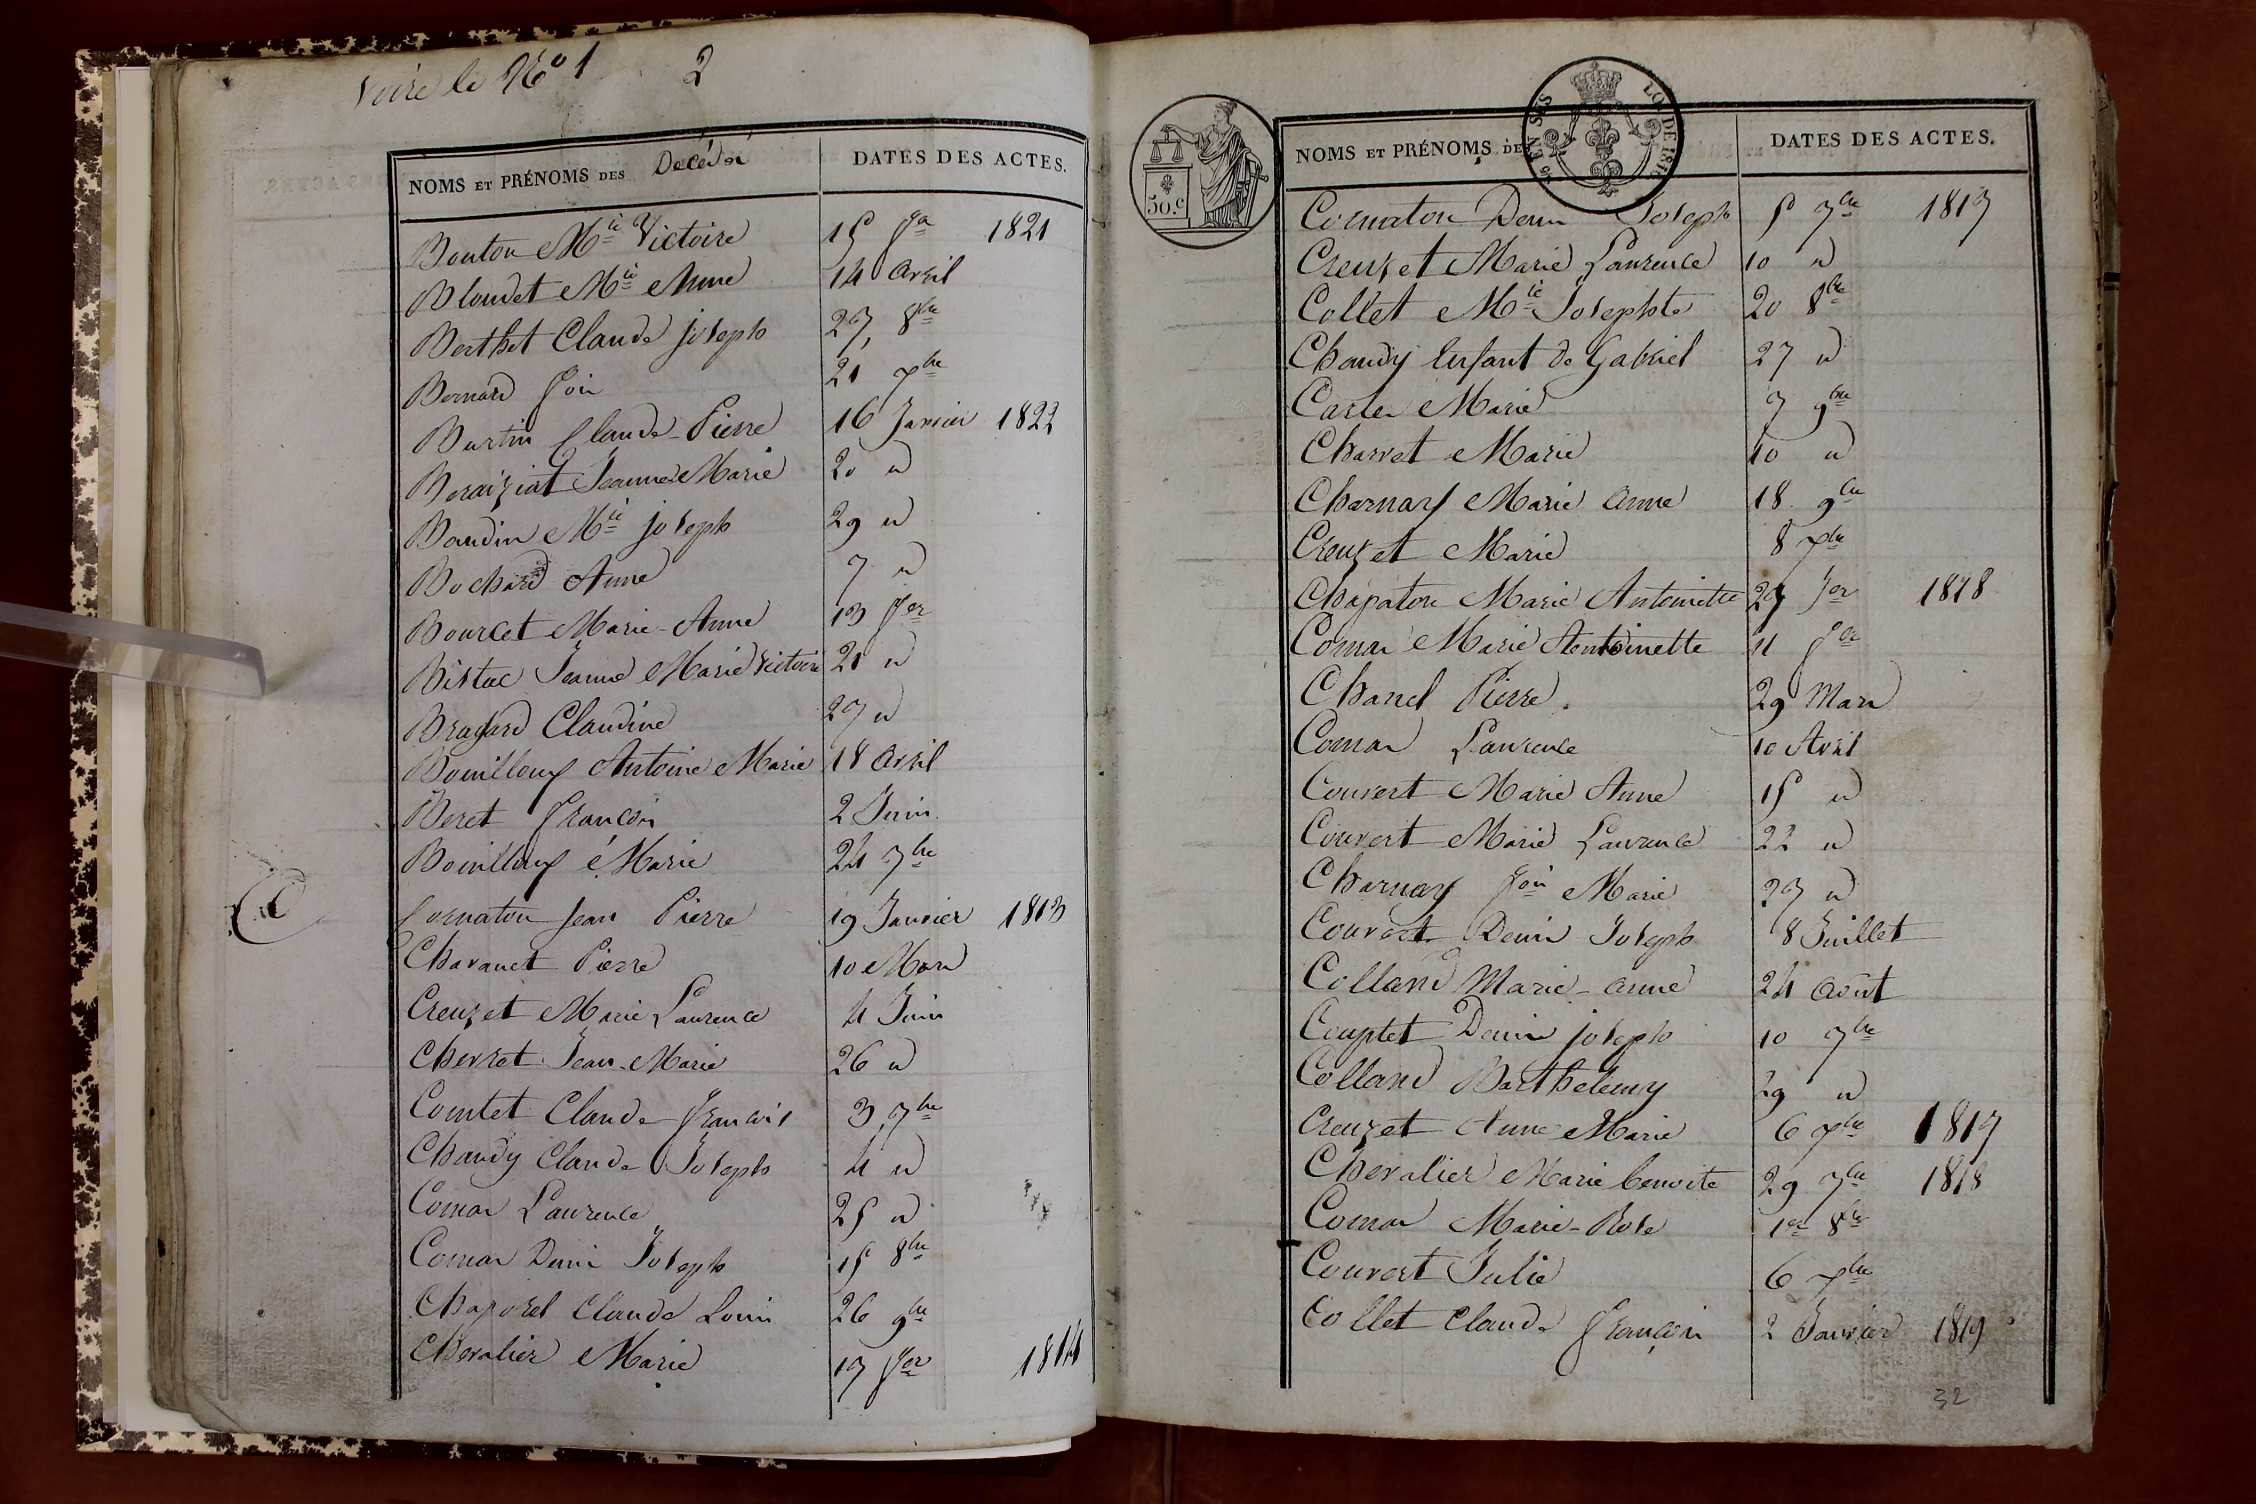 Voire le No 1 2
NOMS ET PRÉNOMS DES Décédés DATES DES ACTES.
Bouton Mie Victoire 15 fer 1821
Blondet Mie Anne 14 avril
Berthet Claude joseph 27 8bre
Bernard fois 21 xbre
Burtin Claude-Pierre 16 Janvier 1822
Beraiziat Jeanne Marie 20 "
Baudin Mie joseph 29 "
Bochard Anne 7 "
Bourcet Marie-Anne 13 fer
Bistac Jeanne Marie Victoire 21 "
Bragard Claudine 27 "
Bouilloux Antoine Marie 18 avril
Beret françois 2 Juin
Bouilloux Marie 24 7bre
C
Cornaton Jean Pierre 19 Janvier 1813
Chavanet Pierre 10 Mars
Creuzet Marie Laurence 4 Juin
Chervet Jean-Marie 26 "
Comtet Claude françois 3 7bre
Chaudy Claude Joseph 4 "
Comas Laurence 25 "
Comas Denis Joseph 15 8bre
Chaporel Claude Louis 26 9bre
Chevalier Marie 17 fer 1814
30.c
LOI DE 1816
NOMS ET PRÉNOMS DES DATES DES ACTES.
Cornaton Denis Joseph 5 7bre 1817
Creuzet Marie Laurence 10 "
Collet Mie Josephte 20 8bre
Chaudy Enfant de Gabriel 27 "
Carler Marie 7 9bre
Charvet Marie 10 "
Charnay Marie anne 18 9bre
Creuzet Marie 8 xbre
Chapaton Marie Antoinette 27 Jer 1818
Comas Marie Antoinette 11 fer
Chanel Pierre. 29 Mars
Comas Laurence 10 Avril
Couvert Marie Anne 15 "
Couvert Marie Laurence 22 "
Charnay foise Marie 27 "
Couvert Denis Joseph 8 Juillet
Colland Marie-anne 24 août
Couptet Denis joseph 10 7bre
Colland Barthelemy 29 "
Creuzet Anne Marie 6 xbre 1817
Chevalier Marie benoite 29 7bre 1818
Comas Marie-Rose 1er 8bre
Couvert Julie 6 xbre
Collet Claude françois 2 Janvier 1819
32